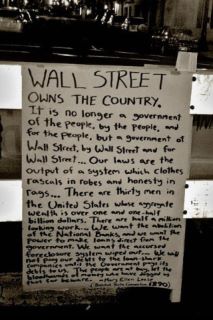 WALL STREET
OWNS THE COUNTRY.
It is no longer a government
of the people, by the people, and
for the people, but a government of
Wall Street, by Wall Street and for
Wall Street... Our laws are the
output of a system which clothes
rascals in robes and honesty in
rags... There are thirty men in
the United States whose aggregate
wealth is over one and one-half
billion dollars. There are half a million
looking work... We want the abolition
of the National Banks, and we want the
power to make loans direct from the
government. We want the accursed
foreclosure system wiped out... We will
not pay our debts to the loan-shark
until the Government pays its
debts to us. The people are at bay, let the
bloodhounds of money who have dogged us
thus far beware. -Mary Ellen
1890)